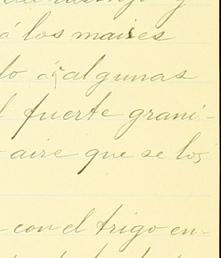 á los maises
do á algunas
fuerte grani-
aire que se los
con el trigo en-